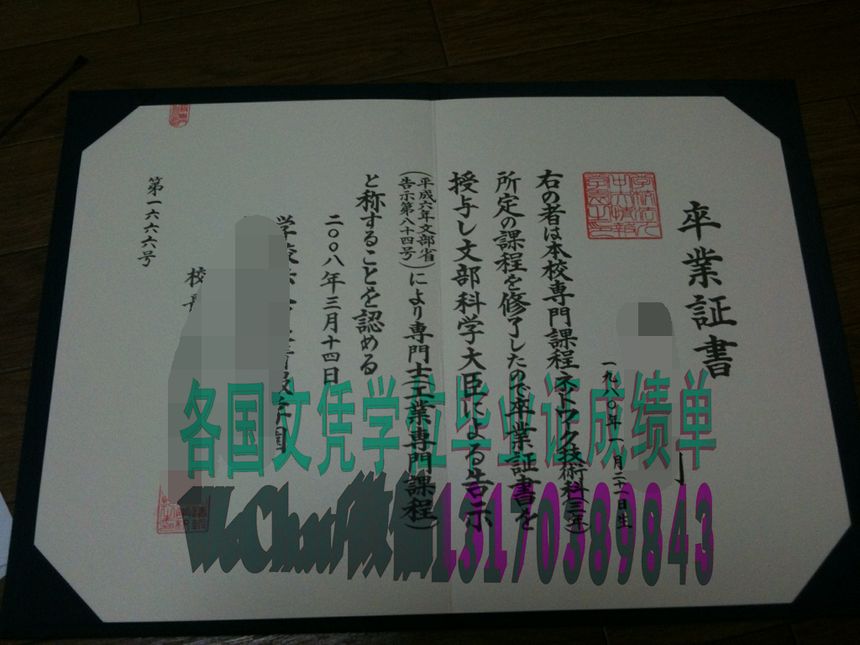 卒業証書
一九八〇年一月二十一日生
右の者は本校専門課程ネットワーク技術科(三年)
所定の課程を修了したので卒業証書を
授与し文部科学大臣による告示
(平成六年文部省
告示第八十四号)により専門士(工業専門課程)
と称することを認める
二〇〇八年三月十四日
学校
校長
第一六六六号
各国文凭学位毕业证成绩单
WeChat/微信13170389843